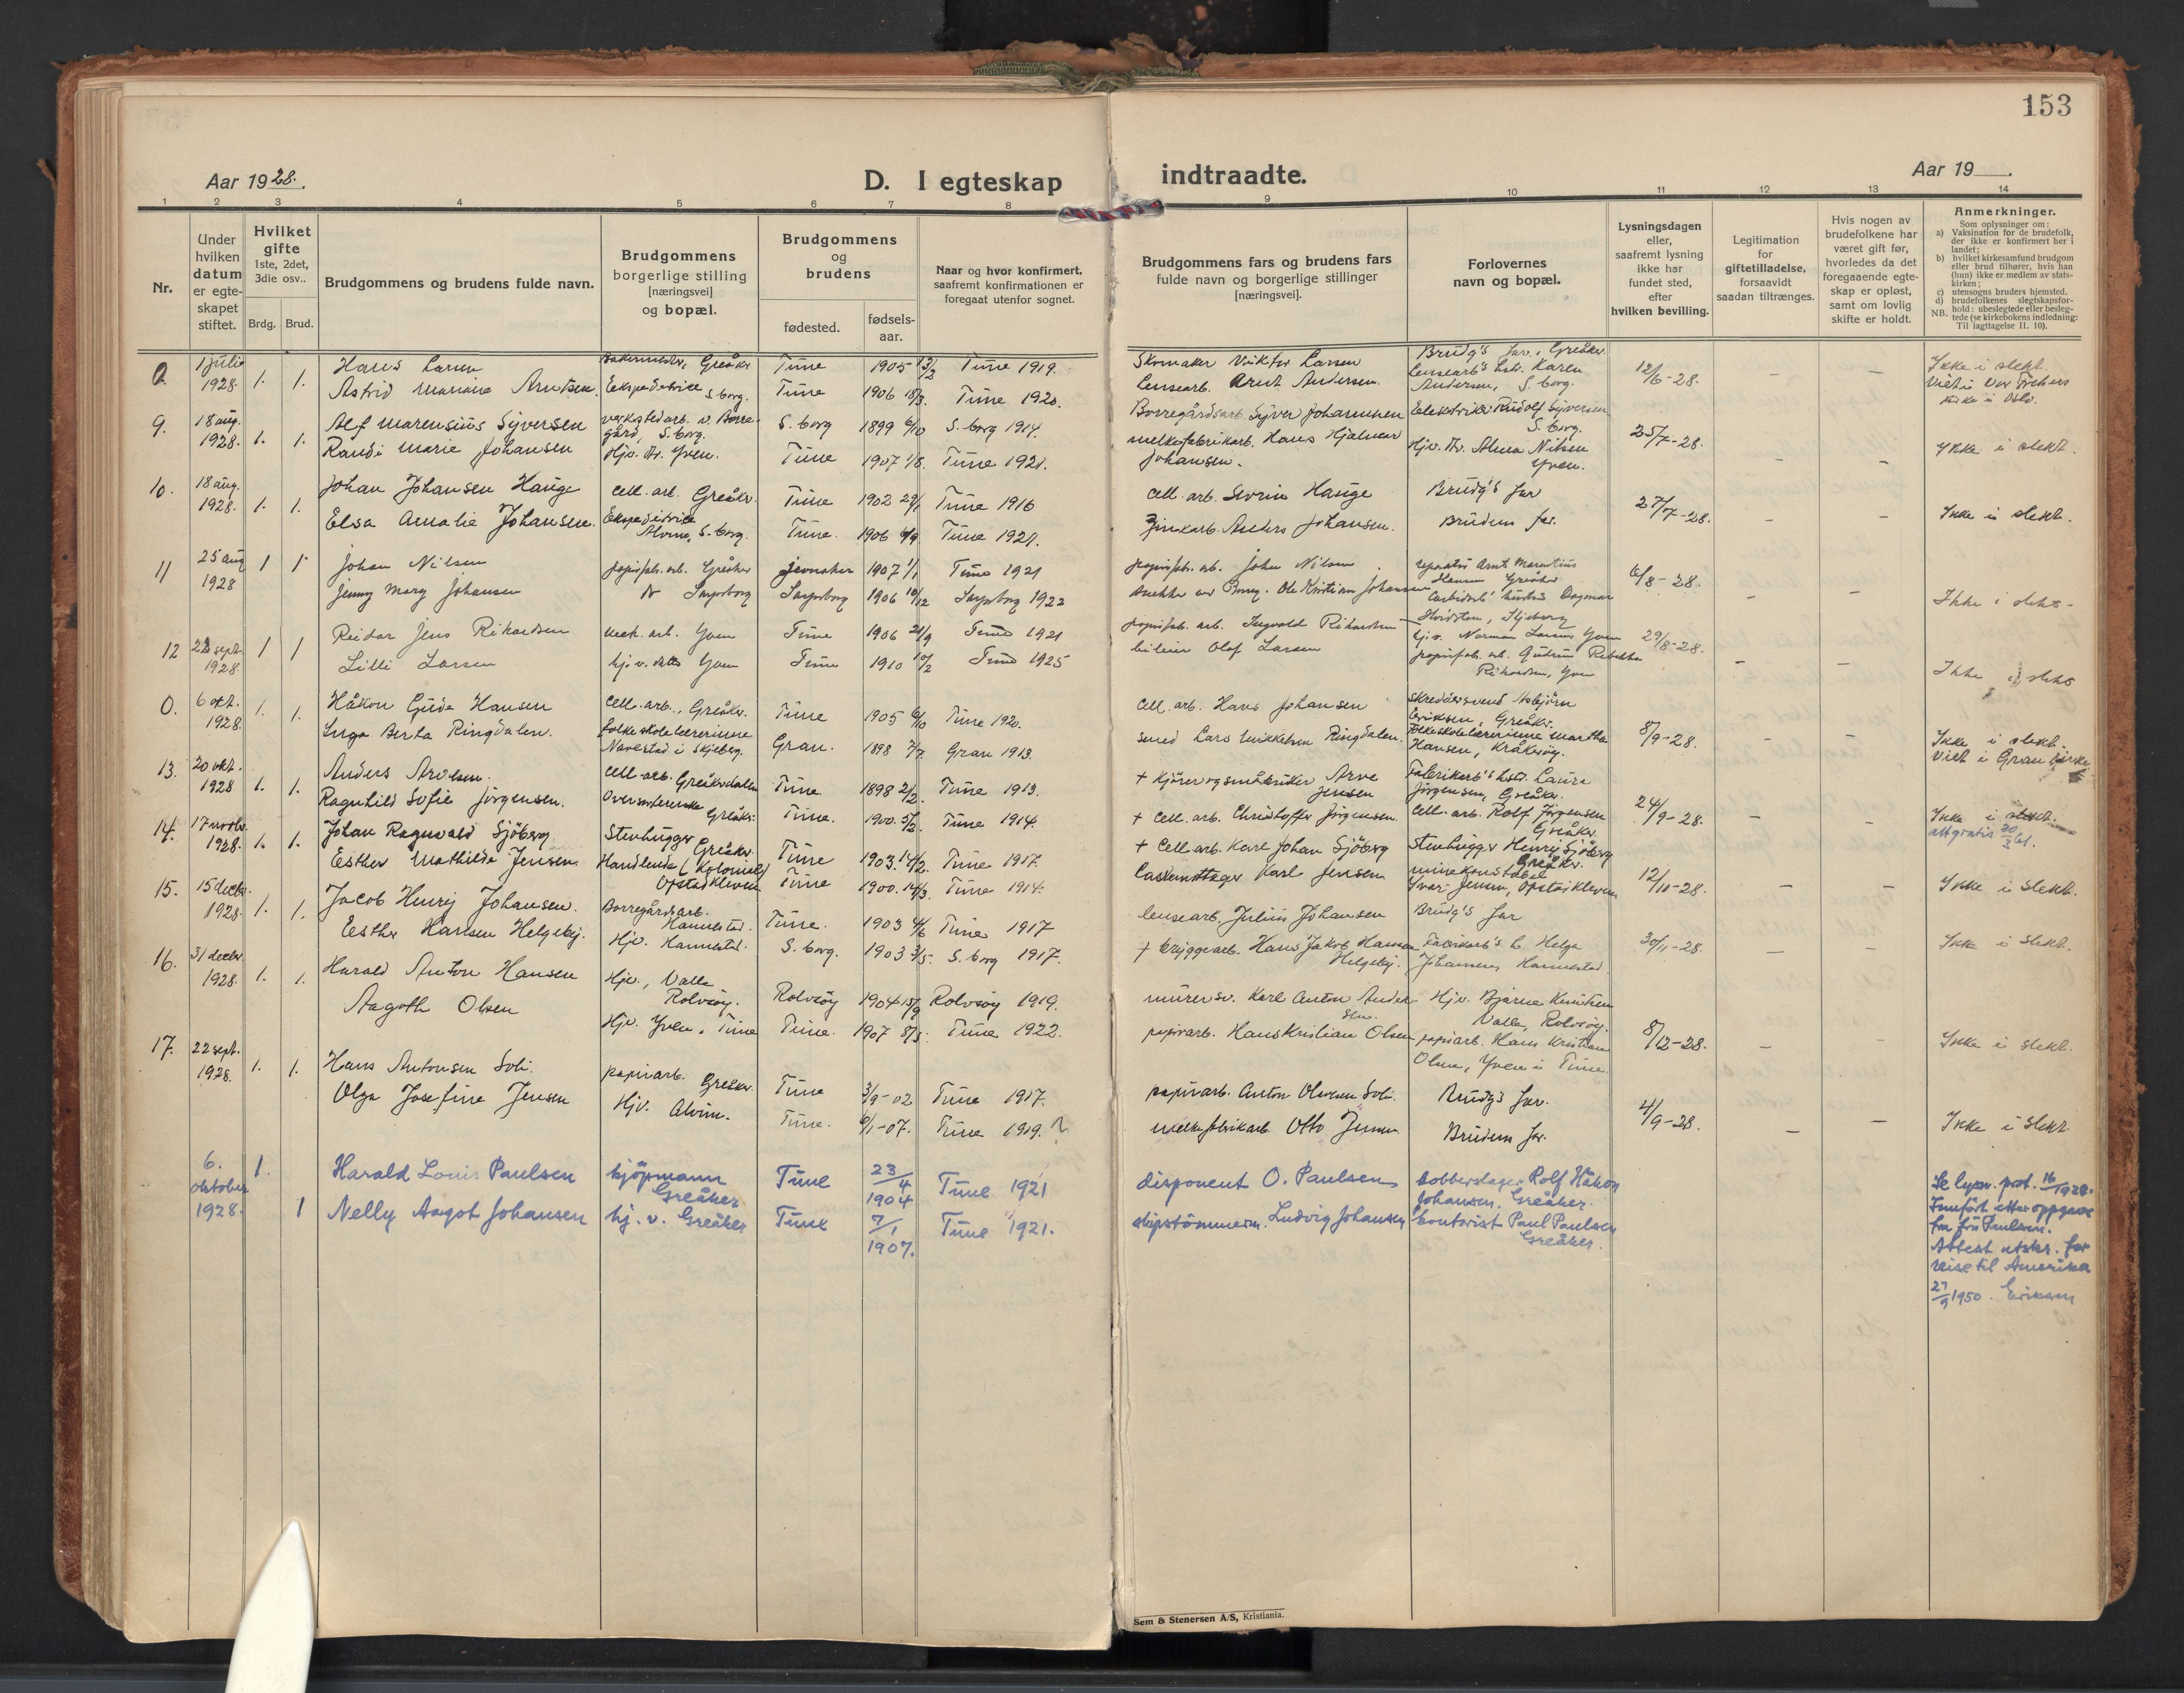 153
Aar 1928.
D. I egteskap indtraadte.
Aar 19
1 2 3 4 5 6 7 8 9 10 11 12 13 14
Nr.
Under hvilken datum er egteskapet stiftet.
Hvilket gifte 1ste, 2det, 3die osv..
Brdg. Brud.
Brudgommens og brudens fulde navn.
Brudgommens borgerlige stilling [næringsvei] og bopæl.
Brudgommens og brudens
fødested.
fødsels-aar.
Naar og hvor konfirmert, saafremt konfirmationen er foregaat utenfor sognet.
Brudgommens fars og brudens fars fulde navn og borgerlige stillinger [næringsvei].
Forlovernes navn og bopæl.
Lysningsdagen eller, saafremt lysning ikke har fundet sted, efter hvilken bevilling.
Legitimation for giftetilladelse, forsaavidt saadan tiltrænges.
Hvis nogen av brudefolkene har været gift før, hvorledes da det foregaaende egteskap er opløst, samt om lovlig skifte er holdt.
Anmerkninger.
Som oplysninger om:
a) Vaksination for de brudefolk, der ikke er konfirmert her i landet;
b) hvilket kirkesamfund brudgom eller brud tilhører, hvis han (hun) ikke er medlem av statskirken;
c) utensogns bruders hjemsted.
d) brudefolkenes slegtskapsforhold: ubeslegtede eller beslegtede (se kirkebokens indledning: Til iagttagelse II. 10).
NB.
0. 1 juli 1928. 1. 1. Hans Larsen Bakermester, Greåker Tune 1905 13/2 Tune 1919. Skomaker Viktor Larsen Brudg's far, Greåker 12/6-28. Ikke i slekt.
Astrid Marine Arntsen. Ekspeditrice S.borg. Tune 1906 18/3. Tune 1920. Lensearb. Arnt Andersen. Lensearb's hstr. Karen Andersen, S.borg. Viet i Vor Frelsers kirke i Oslo.
9. 18 aug. 1928. 1. 1. Alf Marensius Syversen verkstedarb. v. Borregård, S.borg. S.borg 1899 6/10 S.borg 1914. Borregårdsarb. Syver Johannesen Elektriker Rudolf Syversen S.borg. 25/7-28. Ikke i slekt.
Randi Marie Johansen Hjv. dtr. Yven. Tune 1907 1/8. Tune 1921. melkefabrikarb. Hans Hjalmar Johansen. Hjv. Fr. Alma Nilsen Yven.
10. 18 aug. 1928. 1. 1. Johan Johansen Hauge cell. arb. Greåker. Tune 1902 29/1 Tune 1916 cell. arb. Severin Hauge Brudg's far 27/7-28. Ikke i slekt.
Elsa Amalie Johansen. Ekspeditrice Alvim, S.borg. Tune. 1906 Tune 1921. Zinkarb. Anders Johansen. Brudens far.
11 25 aug 1928 1 1 Johan Nilsen papirfab. arb. Greåker Jevnaker 1907 1/1 Tune 1921 papirfab. arb. John Nilsen reparatør Arnt Marentius Hansen Greåker 6/8-28. Ikke i slekt
Jenny Mary Johansen Sarpsborg Sarpsborg 1906 10/12 Sarpsborg 1922 Ole Kristian Johansen Dagmar
12 22 sept. 1928. 1 1 Reidar Jens Rikardsen cell. arb. Yven Tune 1906 21/9 Tune 1921 papirfab. arb. Ingvald Rikardsen hj.v. Norman Larsen Yven 29/8-28. Ikke i slekt
Lilli Larsen hj.v. Yven Tune 1910 10/2 Tune 1925 Olaf Larsen papirfab. arb. Gudrun Rikardsen, Yven
0. 6 okt. 1928. 1. 1. Håkon Gude Hansen cell. arb., Greåker. Tune 1905 6/10 Tune 1920. cell. arb. Hans Johansen Skreddersvend Asbjørn Eriksen, Greåker. 8/9-28. Ikke i slekt.
Inga Berta Ringdalen. folkeskolelærerinne Navestad i Skjeberg. Gran. 1898 7/7 Gran 1913. smed Lars Mikkelsen Ringdalen. Folkeskolelærerinne Martha Hansen, Kråkerøy. Viet i Gran kirke
13. 20 okt. 1928 1. 1. Anders Arvesen. cell. arb. Greåkerdalen Tune. 1898 2/2. Tune 1913. + Kjører og småbruker Arve Jensen Fabrikarb's hstr. Laura Jørgensen, Greåker. 24/9-28. Ikke i slekt.
Ragnhild Sofie Jørgensen. Greåker. Tune. 1900. 5/2 Tune 1914. + cell. arb. Christoffer Jørgensen. cell. arb. Rolf Jørgensen Greåker.
14. 17 novbr. 1928. 1. 1. Johan Ragnvald Sjøberg Stenhugger Greåker. Tune 1903 14/2. Tune 1917. + cell. arb. Karl Johan Sjøberg Stenhugger Henry Sjøberg Greåker. 12/11-28. Ikke i slekt.
Esther Mathilde Jensen Handlende (Kolonial) Opstadkleven Tune 1900. 14/3. Tune 1914. Karl Jensen minekonstabel Ivar Jensen, Opstadkleven
15. 15 decbr. 1928. 1. 1. Jacob Henry Johansen. Borregårdsarb. Hannestad. Tune. 1903 4/6 Tune 1917 lensearb. Julius Johansen Brudg's far 30/11-28. Ikke i slekt.
Esther Hansen Helgeby. Hjv. Hannestad. S.borg. 1903 3/5. S.borg 1917. + bryggearb. Hans Jakob Hansen Helgeby. Fabrikarb's h. Helga Johannesen Hannestad.
16. 31 decbr. 1928. 1. 1. Harald Anton Hansen Hjv., Valle Rolvsøy. Rolvsøy 1904 15/9 Rolvsøy 1919. murersv. Karl Anton Andersen. Hjv. Bjarne Karlsen Valle, Rolvsøy. 8/12-28. Ikke i slekt.
Aagoth Olsen Hjv. Yven, Tune Tune. 1907 8/5. Tune 1922. papirarb. Hans Kristian Olsen papirarb. Hans Kristian Olsen, Yven i Tune
17. 22 sept. 1928. 1. 1. Hans Antonsen Soli. papirarb. Greåker. Tune 3/9-02 Tune 1917. papirarb. Anton Olavsen Soli. Brudg's far. 4/9-28. Ikke i slekt
Olga Josefine Jensen Hjv. Alvim. Tune. 6/1-07. Tune 1919.? melkefabrikarb. Otto Jensen. Brudens far.
6. oktober 1928. 1. Harald Louis Paulsen kjøpmann Greåker Tune 23/4 1904 Tune 1921 disponent O. Paulsen kobberslager Rolf Håkon Johansen, Greåker.
1 Nelly Aagot Johansen hj. v. Greåker Tune 7/1 1907. Tune 1921. skipstømmerm. Ludvig Johansen kontorist Paul Paulsen Greåker.
Se lysn. prot. 16/1928.
Innført etter oppgave
fra fru Paulsen.
Attest utskr. for
reise til Amerika
27/9 1950. Eriksen
Sem & Stenersen A/S, Kristiania.